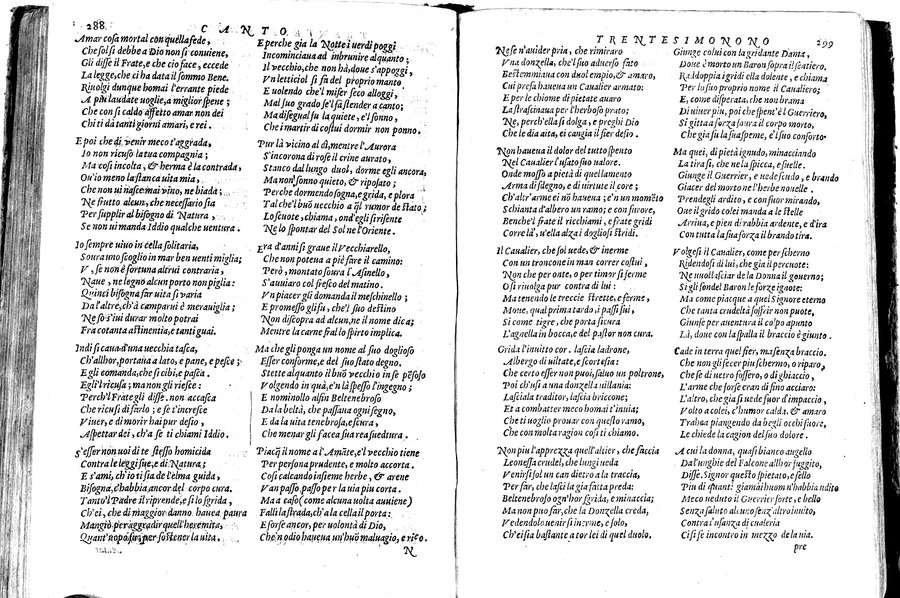 288 CANTO
Amar cosa mortal con quella fede,
Che sol si debbe a Dio non si conuiene,
Gli disse il Frate, e che cio face, eccede
La legge, che ci ha data il sommo Bene.
Riuolgi dunque homai l'errante piede
A piu laudate uoglie, a miglior spene;
Che con si caldo affetto amar non dei
Chi ti dà tanti giorni amari, e rei.
E poi che di uenir meco t'aggrada,
Io non ricuso la tua compagnia;
Ma così incolta, & herma è la contrada,
Ou'io meno la stanca uita mia,
Che non ui nasce mai uino, ne biada;
Ne frutto alcun, che necessario sia
Per supplir al bisogno di Natura,
Se non ui manda Iddio qualche uentura.
Io sempre uiuo in cella solitaria,
Soura uno scoglio in mar ben uenti miglia;
V, se non è fortuna altrui contraria,
Naue, ne legno alcun porto non piglia:
Quinci bisogna far uita sì uaria
Da l'altre, ch'à camparui è merauiglia;
Ne so s'iui durar molto potrai
Fra cotanta astinentia, e tanti guai.
Indi si caua d'una uecchia tasca,
Ch'allhor, portaua a lato, e pane, e pesce;
E gli comanda, che si cibi, e pasca.
Egli'l ricusa; ma non gli riesce:
Perch'l Frate gli disse. non accasca
Che ricusi di farlo; e se t'incresce
Viuer, e di morir hai pur desio,
Aspettar dei, ch'a se ti chiami Iddio.
S'esser non uoi di te stesso homicida
Contra le leggi sue, e di Natura;
E s'ami, ch'io ti sia de l'elma guida,
Bisogna, c'habbia ancor del corpo cura.
Tanto'l Padre il riprende, e sì lo sgrida,
Ch'ei, che di maggior danno haueа paura
Mangiò per aggradir quell'heremita,
Quant'nopo fusse per sostener la uita.
E perche gia la Notte i uerdi poggi
Incominciaua ad inbrunire alquanto;
Il vecchio, che non hà, doue s'appoggi,
Vn letticiol si fa del proprio manto
E uolendo che'l miser seco alloggi,
Mal suo grado se'l fa stender a canto;
Ma disegual fu la quiete, e'l sonno,
Che i martir di costui dormir non ponno.
Pur là vicino al dì, mentre l'Aurora
S'incorona di rose il crine aurato,
Stanco dal lungo duol, dorme egli ancora,
Ma non sonno quieto, & riposato;
Perche dormendo sogna, e grida, e plora
Tal che'l buō vecchio a q̃l rumor de stato;
Lo scuote, chiama, ond'egli si risente
Ne lo spontar del Sol ne l'Oriente.
Era d'anni sì graue il Vecchiarello,
Che non poteua a piè fare il camino:
Però, montato soura l'Asinello,
S'auuiaro col fresco del matino.
Vn piacer gli domanda il meschinello;
E promesso gli fu, che'l suo destino
Non discopra ad alcun, ne il nome dica;
Mentre la carne fral lo spirto implica.
Ma che gli ponga un nome al suo doglioso
Esser conforme, e del suo stato degno.
Stette alquanto il buō vecchio in se pēsoso
Volgendo in quà, e'n là spesso l'ingegno;
E nominollo alfin Beltenebroso
Da la beltà, che passaua ogni segno,
E da la uita tenebrosa, e scura,
Che menar gli facea sua rea suentura.
Piacq̃ il nome a l'Amāte, e'l vecchio tiene
Per persona prudente, e molto accorta.
Così calcando insieme herbe, & arene
Van passo passo per la uia piu corta.
Ma a caso (come alcuna uolta auiene)
Falli la strada, ch'a la cella il porta:
E forse ancor, per uolontà di Dio,
Che'n odio haueua un'huō maluagio, e rio.
N
TRENTESIMONONO 299
Ne se n'auider pria, che rimiraro
Vna donzella, che'l suo aduerso fato
Bestemmiaua con duol empio, & amaro,
Cui presa haueua un Caualier armato:
E per le chiome di pietate auaro
La strascinaua per l'herboso prato;
Ne, perch'ella si dolga, e preghi Dio
Che le dia aita, ei cangia il fier desio.
Non haueua il dolor del tutto spento
Nel Caualier l'usato suo ualore.
Onde mosso a pietà di quel lamento
Arma di sdegno, e di uirtute il core;
Ch'altr'arme ei nō haueua; e'n un momēto
Schianta d'albero un ramo; e con furore,
Benche'l frate il ricchiami, e frate gridi
Corre là, u'ella alza i dogliosi stridi.
Il Caualier, che sol uede, & inerme
Con un troncone in man correr costui,
Non che per onte, o per timor si ferme
O si riuolga pur contra di lui:
Ma tenendo le treccie strette, e ferme,
Moue, qual prima tardo, i passi sui,
Si come tigre, che porta sicura
L'agnella in bocca, e del pastor non cura.
Grida l'inuitto cor. lascia ladrone,
Albergo di uiltate, e scortesia:
Che certo esser non puoi, saluo un poltrone,
Poi ch'usi a una donzella uillania:
Lasciala traditor, lascia briccone;
Et a combatter meco homai t'inuia;
Che ti uoglio prouar con questo ramo,
Che con molta ragion così ti chiamo.
Non piu l'apprezza quell'altier, che faccia
Leonessa crudel, che lungi ueda
Venirsi sol un can dietro a la traccia,
Per far, che lasci la gia fatta preda:
Beltenebroso ogn'hor sgrida, e minaccia;
Ma non puo far, che la Donzella creda,
Vedendolo uenir sì inerme, e solo,
Ch'ei sia bastante a tor lei di quel duolo.
Giunge colui con la gridante Dama,
Doue è morto un Baron sopra il sentiero.
Raddoppia i gridi ella dolente, e chiama
Per lo suo proprio nome il Caualiero;
E, come disperata, che non brama
Di uiuer piu, poi che spent'è l Guerriero,
Si gitta a forza soura il corpo morto,
Che gia fu la sua speme, e'l suo conforto.
Ma quei, di pietà ignudo, minacciando
La tira sì, che ne la spicca, e suelle.
Giunge il Guerrier, e uede scudo, e brando
Giacer del morto ne l'herbe nouelle.
Prendegli ardito, e con suror mirando,
Oue il grido colei manda a le stelle
Arriua, e pien di rabbia ardente, e d'ira
Con tutta la sua forza il brando tira.
Volgesi il Caualier, come per scherno
Ridendosi di lui, che già il percuote:
Ne uuol lasciar de la Donna il gouerno;
Si gli son del Baron le forze ignote:
Ma come piacque a quel Signore eterno
Che tanta crudeltà soffrir non puote,
Giunse per auentura il colpo apunto
Là, doue con la spalla il braccio è giunto.
Cade in terra quel fier, ma senza braccio.
Che non gli fe cer piu schermo, o riparo,
Che se di uetro fossero, o di ghiaccio,
L'arme che forse eran di fino acciaro:
L'altro, che gia si uede fuor d'impaccio,
Volto a colei, c'humor caldo, & amaro
Trahea piangendo da begli occhi fuore,
Le chiede la cagion del suo dolore.
A cui la donna, quasi bianco augello
Da l'unghie del Falcone allhor fuggito,
Disse. Signor questo spietato, e fello
Piu di quant' giamai huom n'habbia udito
Meco ueduto il Guerrier forte, e bello
Senza saluto alcuno senz'altro inuito,
Contra l'usanza di caualeria
Ci si fe incontro in mezzo de la uia.
pre